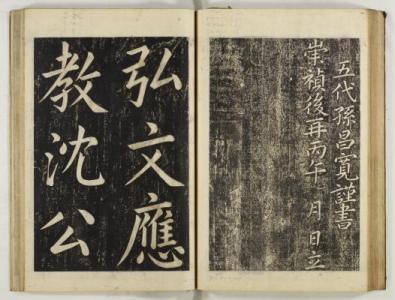 五代孫昌寬謹書
崇禎後再丙午 月 日立
弘文應
教沈公